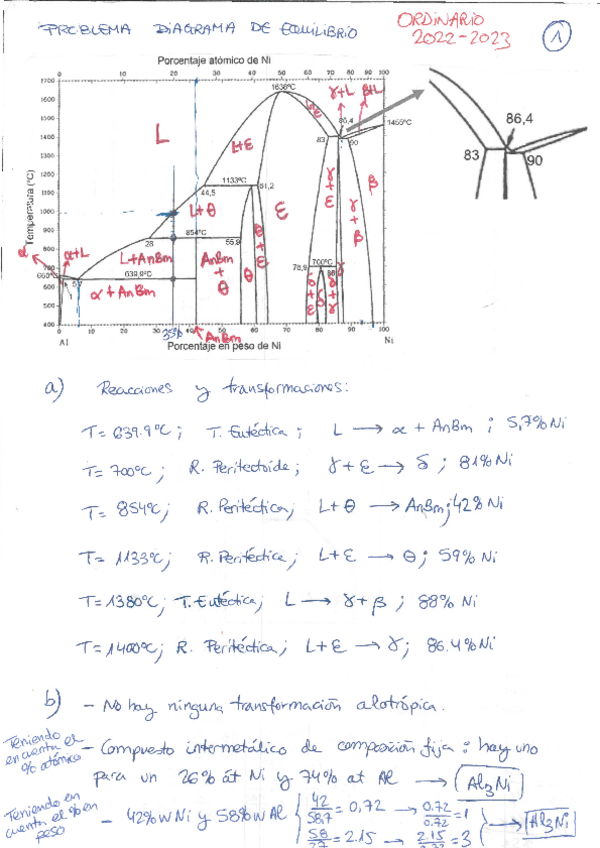 PROBLEMA DIAGRAMA DE EQUILIBRIO
ORDINARIO
2022-2023
1
Porcentaje atómico de Ni
0 10 20 30 40 50 60 70 80 90 100
Temperatura (ºC)
1700
1600
1500
1400
1300
1200
1100
1000
900
800
700
600
500
400
1638ºC
γ+L
β+L
86,4
1455ºC
83
90
L
L+ε
1133ºC
44,5
61,2
L+θ
ε
γ+ε
γ+β
β
854ºC
28
55,9
θ+ε
α
α+L
L+AnBm
AnBm + θ
660º
5,7
639,9ºC
α + AnBm
700ºC
78,9
δ
0 10 20 30 40 50 60 70 80 90 100
Al
35%
AnBm
Ni
Porcentaje en peso de Ni
86,4
83
90
a) Reacciones y transformaciones:
T= 639.9ºC ; T. Eutéctica ; L → α + AnBm ; 5,7% Ni
T= 700ºC ; R. Peritectoide ; γ+ε → δ ; 81% Ni
T= 854ºC ; R. Peritéctica ; L+θ → AnBm ; 42% Ni
T= 1133ºC ; R. Peritéctica ; L+ε → θ ; 59% Ni
T= 1380ºC ; T. Eutéctica ; L → γ+β ; 88% Ni
T= 1400ºC ; R. Peritéctica ; L+ε → γ ; 86.4% Ni
b) - No hay ninguna transformación alotrópica.
Teniendo en cuenta el % atómico
- Compuesto intermetálico de composición fija : hay uno
para un 26% át Ni y 74% at Al → Al3Ni
Teniendo en cuenta el % en peso
- 42% w Ni y 58% w Al { 42/58,7 = 0,72 → 0.72/0.72 = 1
58/27 = 2.15 → 2.15/0.72 = 3 } → Al3Ni